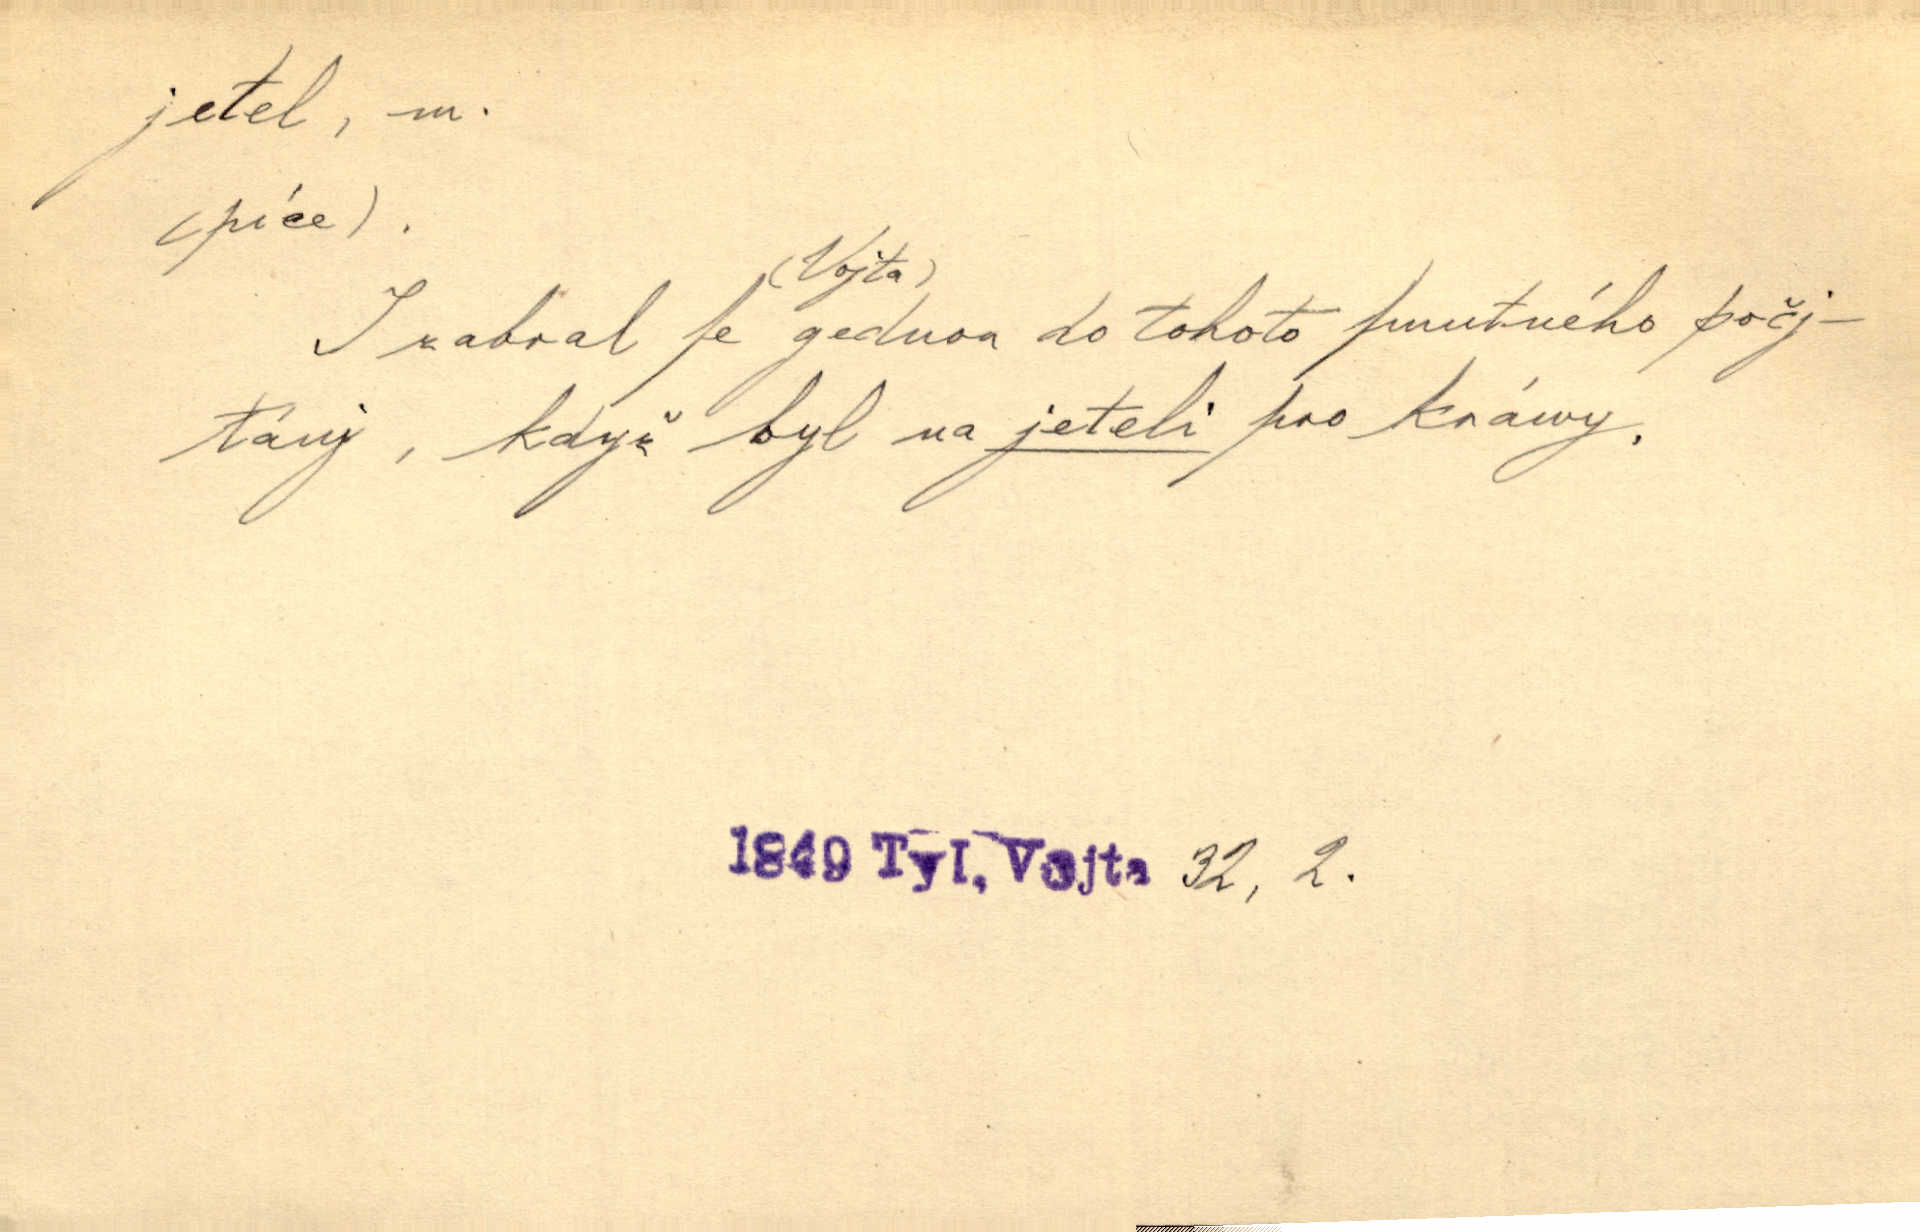 jetel, m.
(píce).
(Vojta)
I zabral ſe gednou do tohoto ſmutného počj-
tánj, když byl na jeteli pro kráwy.
1849 Tyl, Vojta 32, 2.